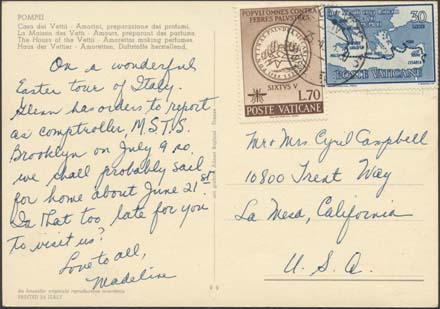 POMPEI
Casa dei Vettii - Amorini, preparazione dei profumi.
La Maison des Vetti - Amours, préparant des parfums.
The House of the Vettii - Amorettes making perfumes.
Haus der Vettier - Amoretten, Duftstoffe herstellend.
On a wonderful
Easter tour of Italy.
Glenn has orders to report
as comptroller, M.S.T.S.
Brooklyn on July 9 so
we shall probably sail
for home about June 21st
Is that too late for you
to visit us?
Love to all,
Madeline
POPVLI OMNES CONTRA
FEBRES PALVSTRES
SIXTVS V
L.70
POSTE VATICANE
30
POSTE VATICANE
Mr & Mrs. Cyril Campbell
10800 Trent Way
La Mesa, California
U.S.A.
PRINTED IN ITALY